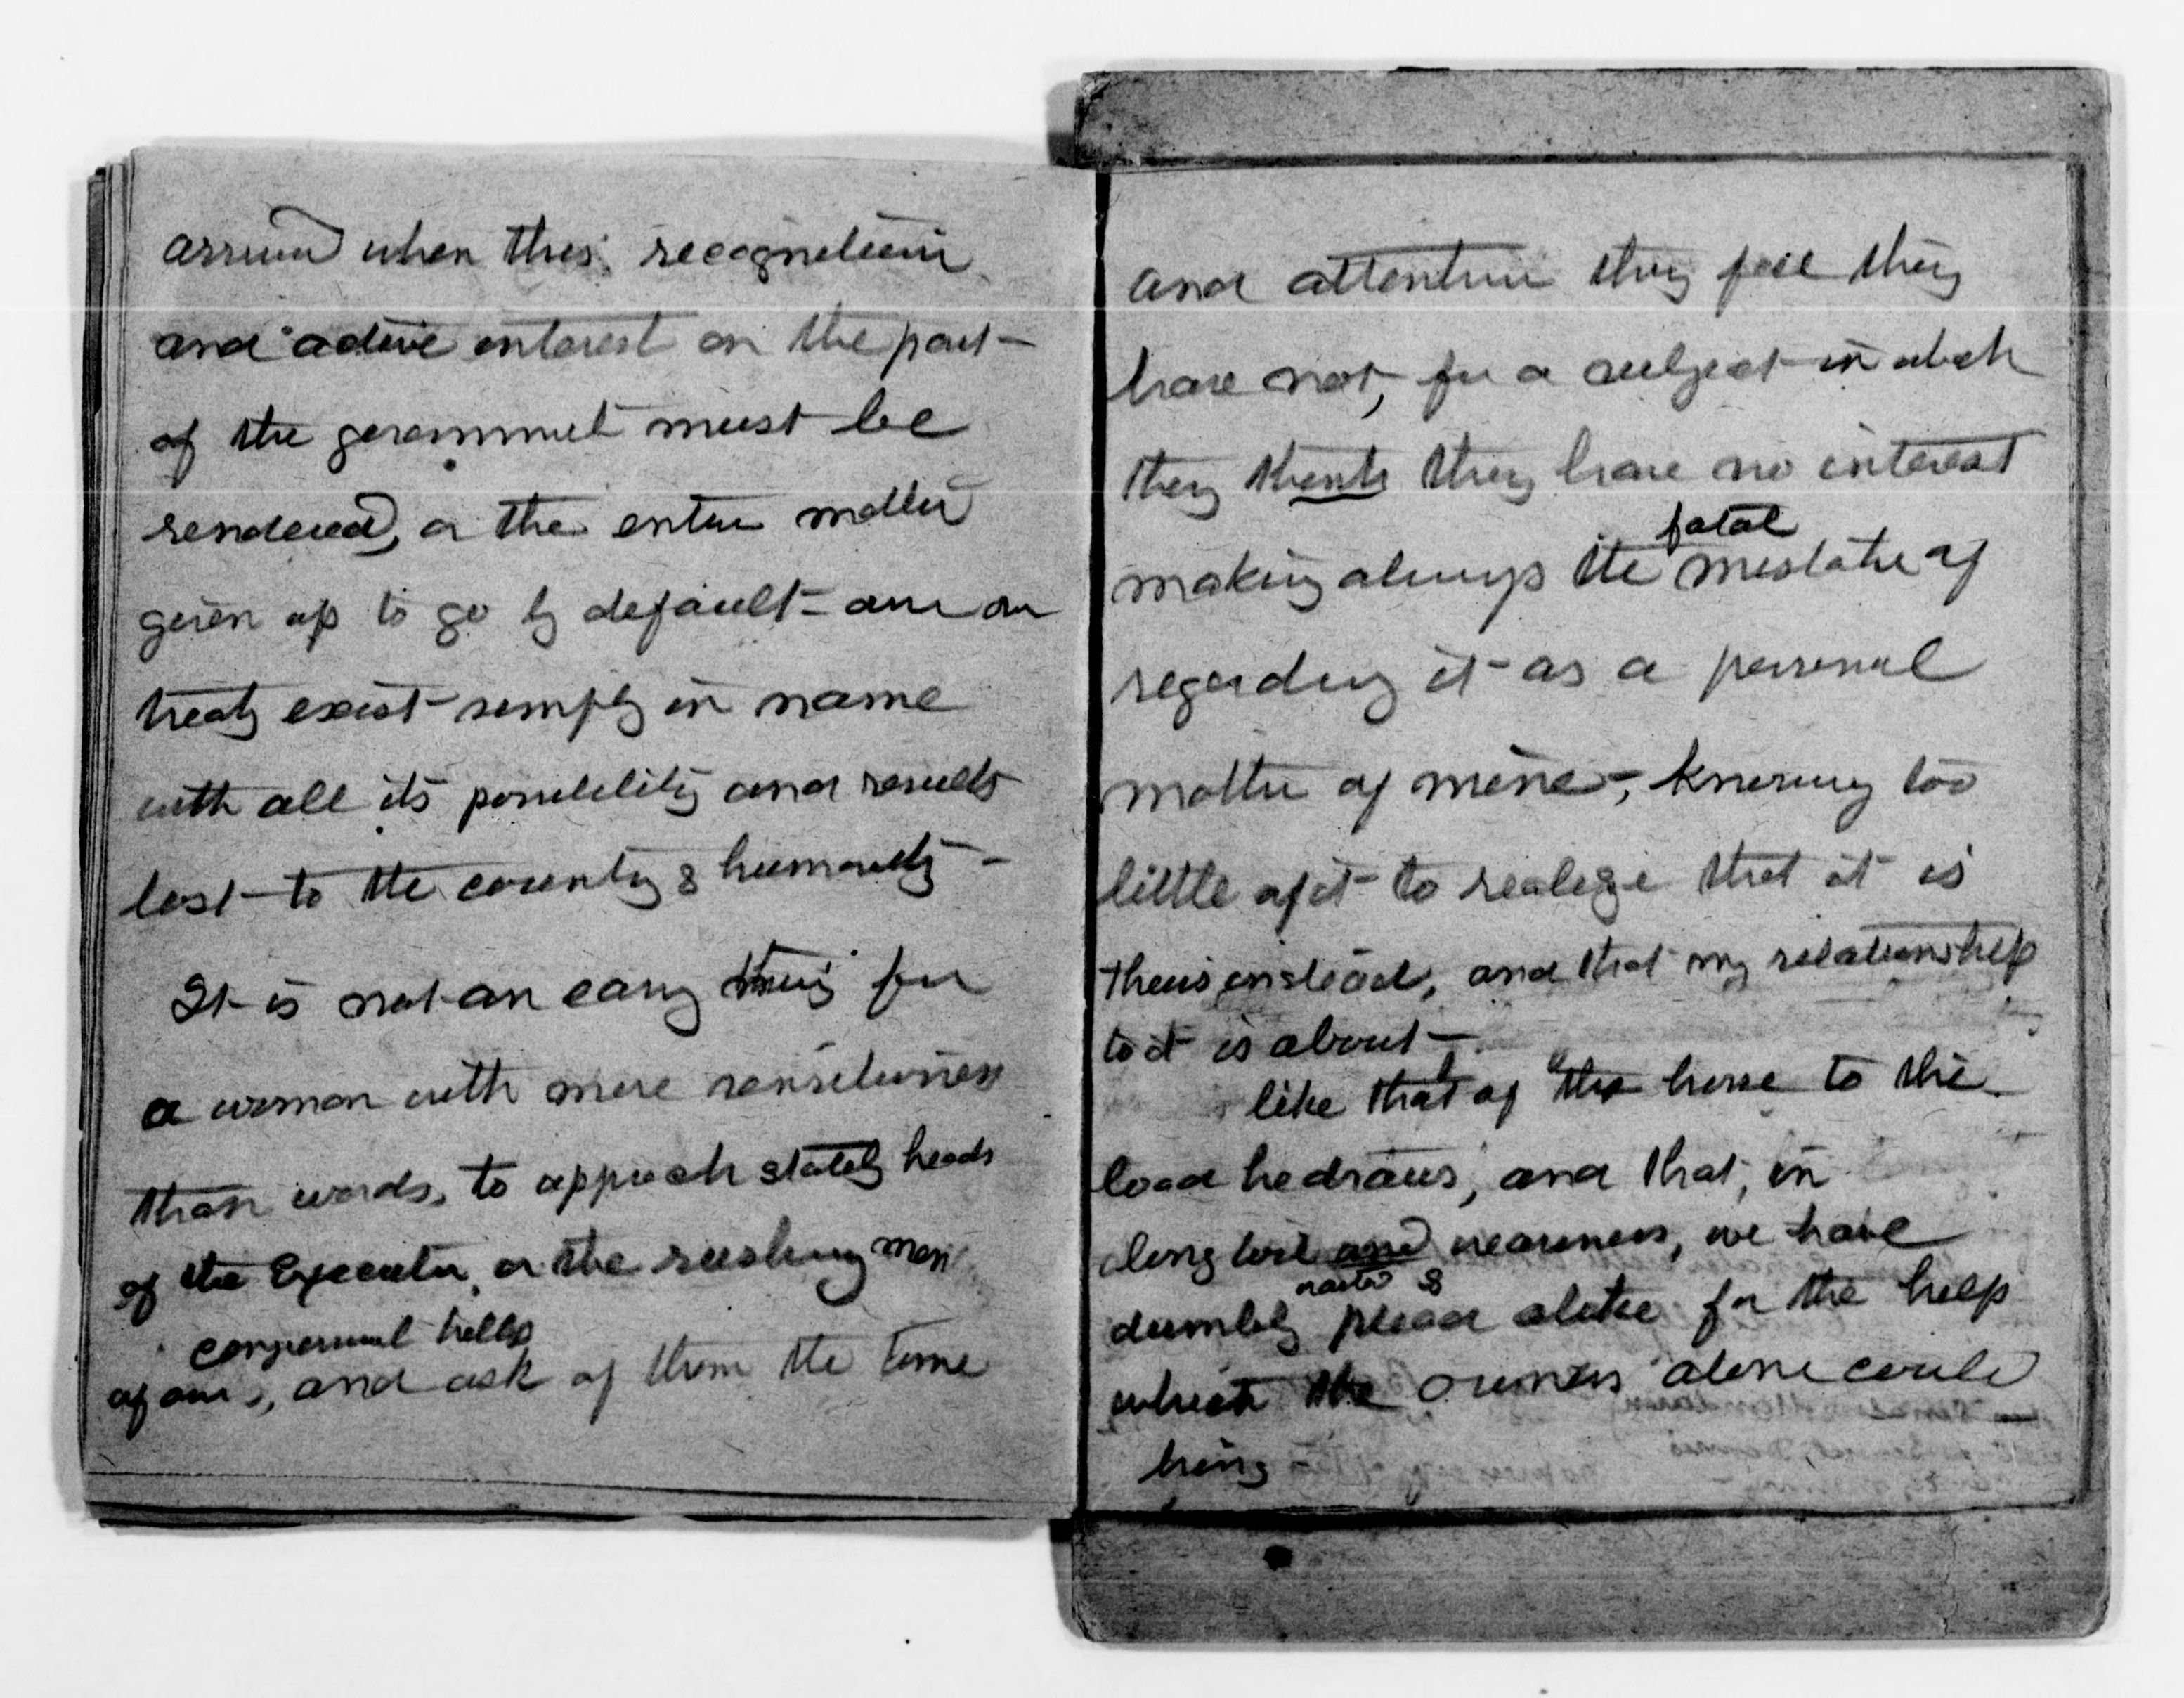 arrived when this recognition
and active interest on the part
of the government must be
rendered, or the entire matter
given up to go by default - and our
treaty exist simply in name
with all its possibility and results
lost to the country & humanity -
It is not an easy thing for
a woman with more sensitiveness
than words, to approach stately heads
of the Executive, or the rushing men
congressional halls
of our, and ask of them the time
and attention they feel they
have not, for a subject in which
they think they have no interest
fatal
making always the mistake of
regarding it as a personal
matter of mine -, knowing too
little of it to realize that it is
theirs instead, and that my relationship
to it is about -
like that of the horse to the
load he draws, and that, in
long toil and weariness, we have
waited &
dumbly plead alike for the help
which the owners alone could
bring -